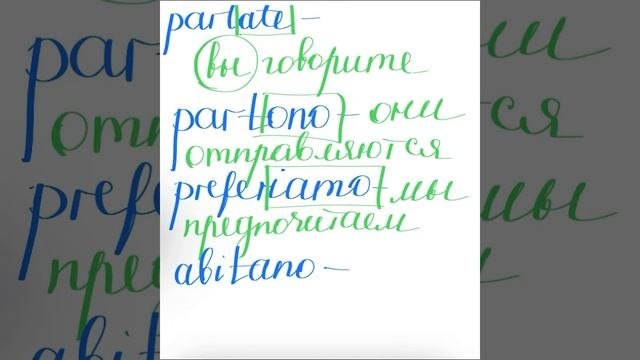 parlate –
вы говорите
partono – они
отправляются
preferiamo – мы
предпочитаем
abitano –